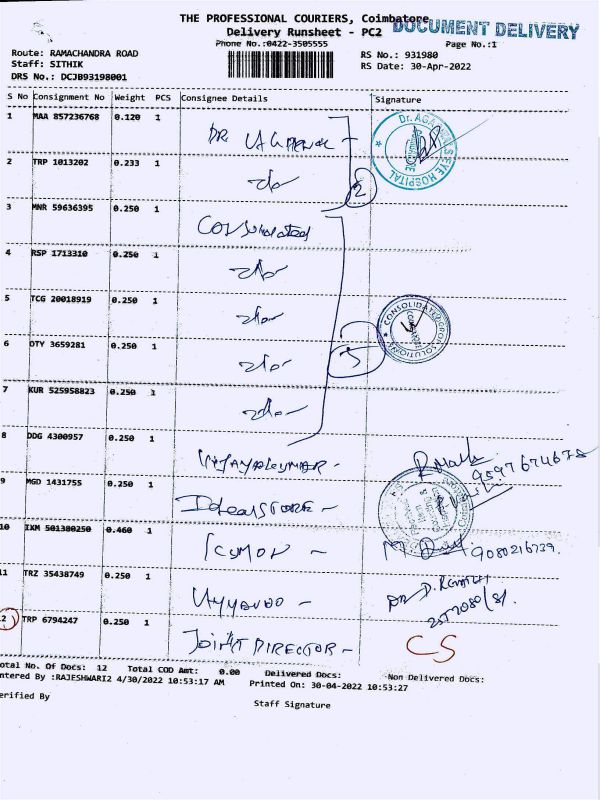 THE PROFESSIONAL COURIERS, Coimbatore
DOCUMENT DELIVERY
Delivery Runsheet - PC2
Phone No.:0422-3505555
Page No.:1
Route: RAMACHANDRA ROAD
Staff: SITHIK
DRS No.: DCJB93198001
RS No.: 931980
RS Date: 30-Apr-2022
S No Consignment No Weight PCS Consignee Details Signature
1 MAA 857236768 0.120 1 DR
Dr. AGARWALS EYE HOSPITAL
2 TRP 1013202 0.233 1
2
3 MNR 59636395 0.250 1 Consolidated
4 RSP 1713310 0.250 1
5 TCG 20018919 0.250 1
CONSOLIDATED
6 OTY 3659281 0.250 1
5
7 KUR 525958823 0.250 1
8 DDG 4300957 0.250 1 VIJAYAKUMAR -
9597674678
9 MGD 1431755 0.250 1 STORE -
10 IXM 501380250 0.460 1
9080216739.
11 TRZ 35438749 0.250 1
12 TRP 6794247 0.250 1 JOINT DIRECTOR - CS
otal No. Of Docs: 12 Total COD Amt: 0.00 Delivered Docs: Non Delivered Docs:
ntered By :RAJESHWARI2 4/30/2022 10:53:17 AM Printed On: 30-04-2022 10:53:27
erified By
Staff Signature